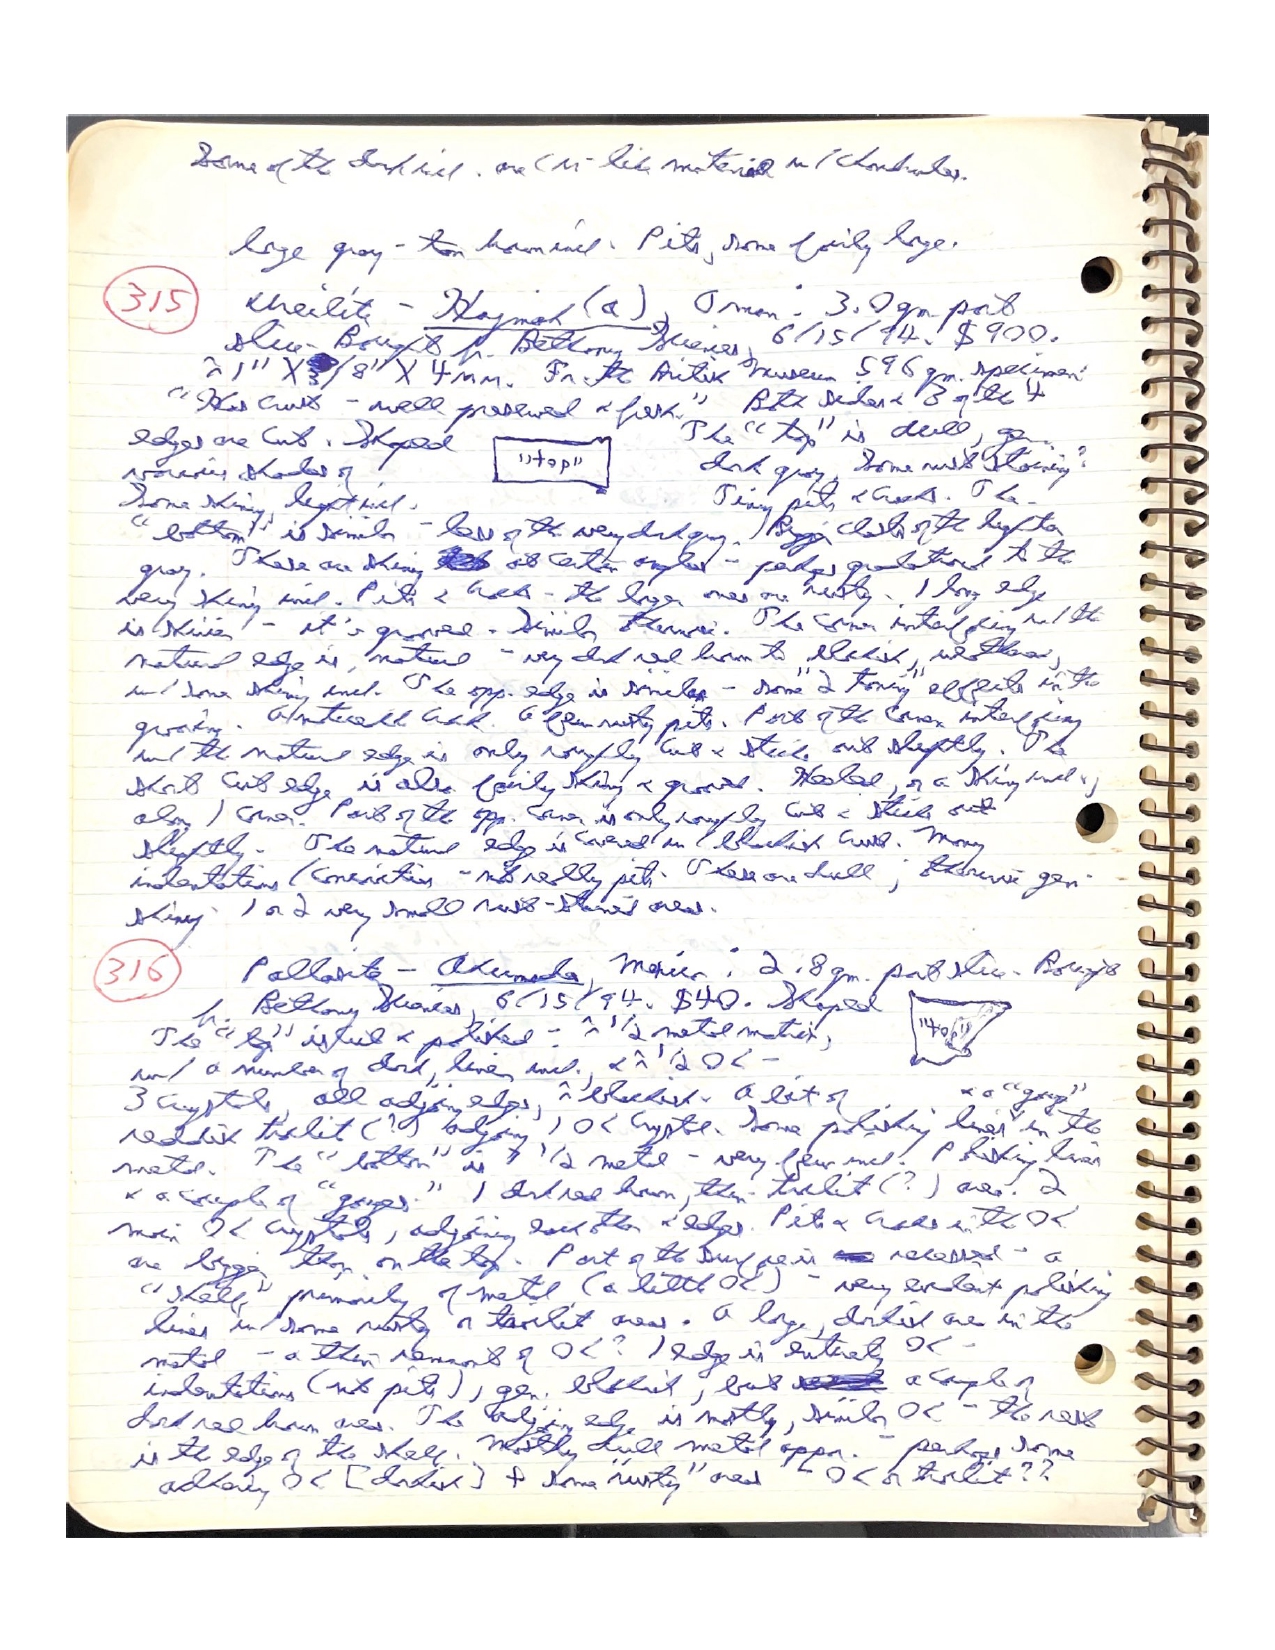 Some of the dark incl. are CM-like material w/ chondrules.
large gray-tan brown incl. Pits, some fairly large.
315
Ureilite - Hajmah (a), Oman: 3.0 gm. part
slice. Bought fr. Bethany Sciences, 6/15/94. $900.
~ 1" X 3/8" X 4 mm. Fr. the British Museum 596 gm. specimen.
"Has crust - well preserved & fresh." Both sides & 3 of the 4
edges are cut. Shaped
"top"
The "top" is dull, gen.
various shades of
dark gray, some rust staining?
Some shiny, light incl.
Tiny pits & cracks. The
"bottom" is similar - less of the very dark gray. Bigger clasts of the lighter
gray. These are shiny at certain angles - perhaps gradational to the
very shiny incl. Pits & cracks - the larger ones are rusty. 1 long edge
is shinier - it's grooved. Similar otherwise. The corner interfacing w/ the
natural edge is natural - very dark red brown to blackish, weathered,
w/ some shiny incl. The opp. edge is similar - some "2 toning" effects in the
grooving. A natural crack. A few rusty pits. Part of the corner interfacing
w/ the natural edge is only roughly cut & sticks out slightly. The
short cut edge is also fairly shiny & grooved. Healed, or a shiny incl.,
along 1 corner. Part of the opp. corner is only roughly cut & sticks out
slightly. The natural edge is covered w/ blackish crust. Many
indentations/concavities - not really pits. These are dull; otherwise gen.
shiny. 1 or 2 very small rust-stained areas.
316
Pallasite - Ahumada, Mexico: 2.8 gm. part slice. Bought
fr. Bethany Sciences, 6/15/94. $40. Shaped
"top"
The "top" is cut & polished - ~ 1/2 metal matrix,
w/ a number of dark, linear incl., & ~ 1/2 OL -
3 crystals, all adjoining edges, ~ blackish. A bit of
& a "gouge"
reddish troilite (?) adjoining 1 OL crystal. Some polishing lines in the
metal. The "bottom" is > 1/2 metal - very few incl. Polishing lines
& a couple of "gouges." 1 dark red brown, thin troilite (?) area. 2
main OL crystals, adjoining each other & edges. Pits & cracks in the OL
are bigger than on the top. Part of the surface is recessed - a
"shelf," primarily of metal (a little OL) - very evident polishing
lines w/ some rusty or troilite areas. A large, darkish area in the
metal - a thin remnant of OL? 1 edge is entirely OL -
indentations (not pits), gen. blackish, but a couple of
dark red brown areas. The adjoin. edge is mostly, similar OL - the rest
is the edge of the shelf. Mostly dull metal oppos. - perhaps some
adhering OL [darkish] + some "rusty" areas - OL or troilite??